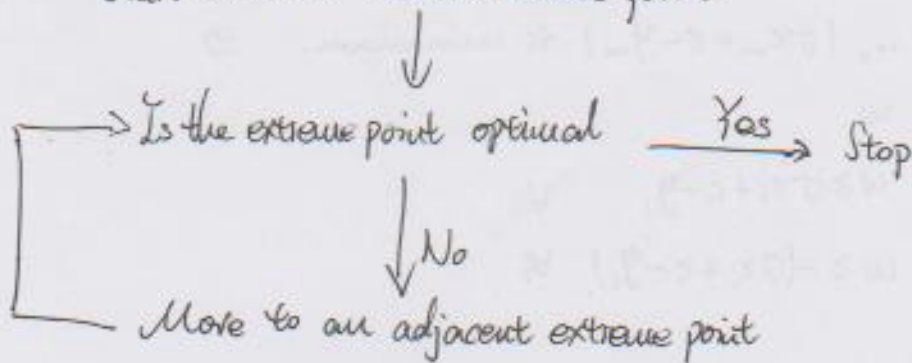 Yes
Is the extreme point optimal Stop
No
Move to an adjacent extreme point